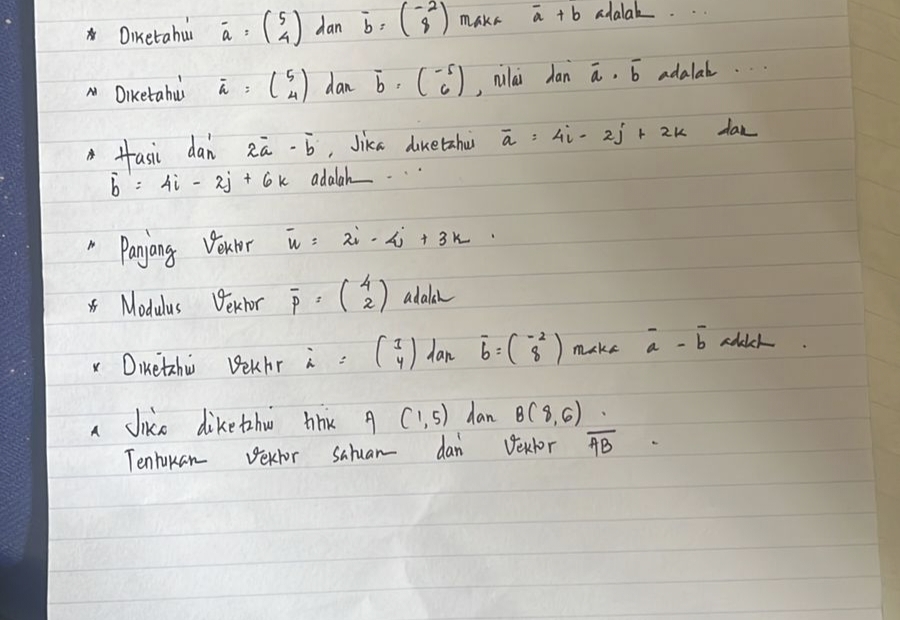 * Diketahui ā = (5 4) dan b̄ = (-2 8) maka ā + b̄ adalah . . .
* Diketahui ā = (5 4) dan b̄ = (-5 6), nilai dari ā . b̄ adalah . . .
* Hasil dari 2ā - b̄, Jika diketahui ā = 4i - 2j + 2k dan
b̄ = 4i - 2j + 6k adalah . . .
* Panjang Vektor ū = 2i - 4j + 3k .
* Modulus Vektor p̄ = (4 2) adalah
* Diketahui Vektor ā = (3 4) dan b̄ = (-2 8) maka ā - b̄ adalah .
* Jika diketahui titik A (1,5) dan B(8,6) .
Tentukan Vektor satuan dari Vektor A̅B̅ .